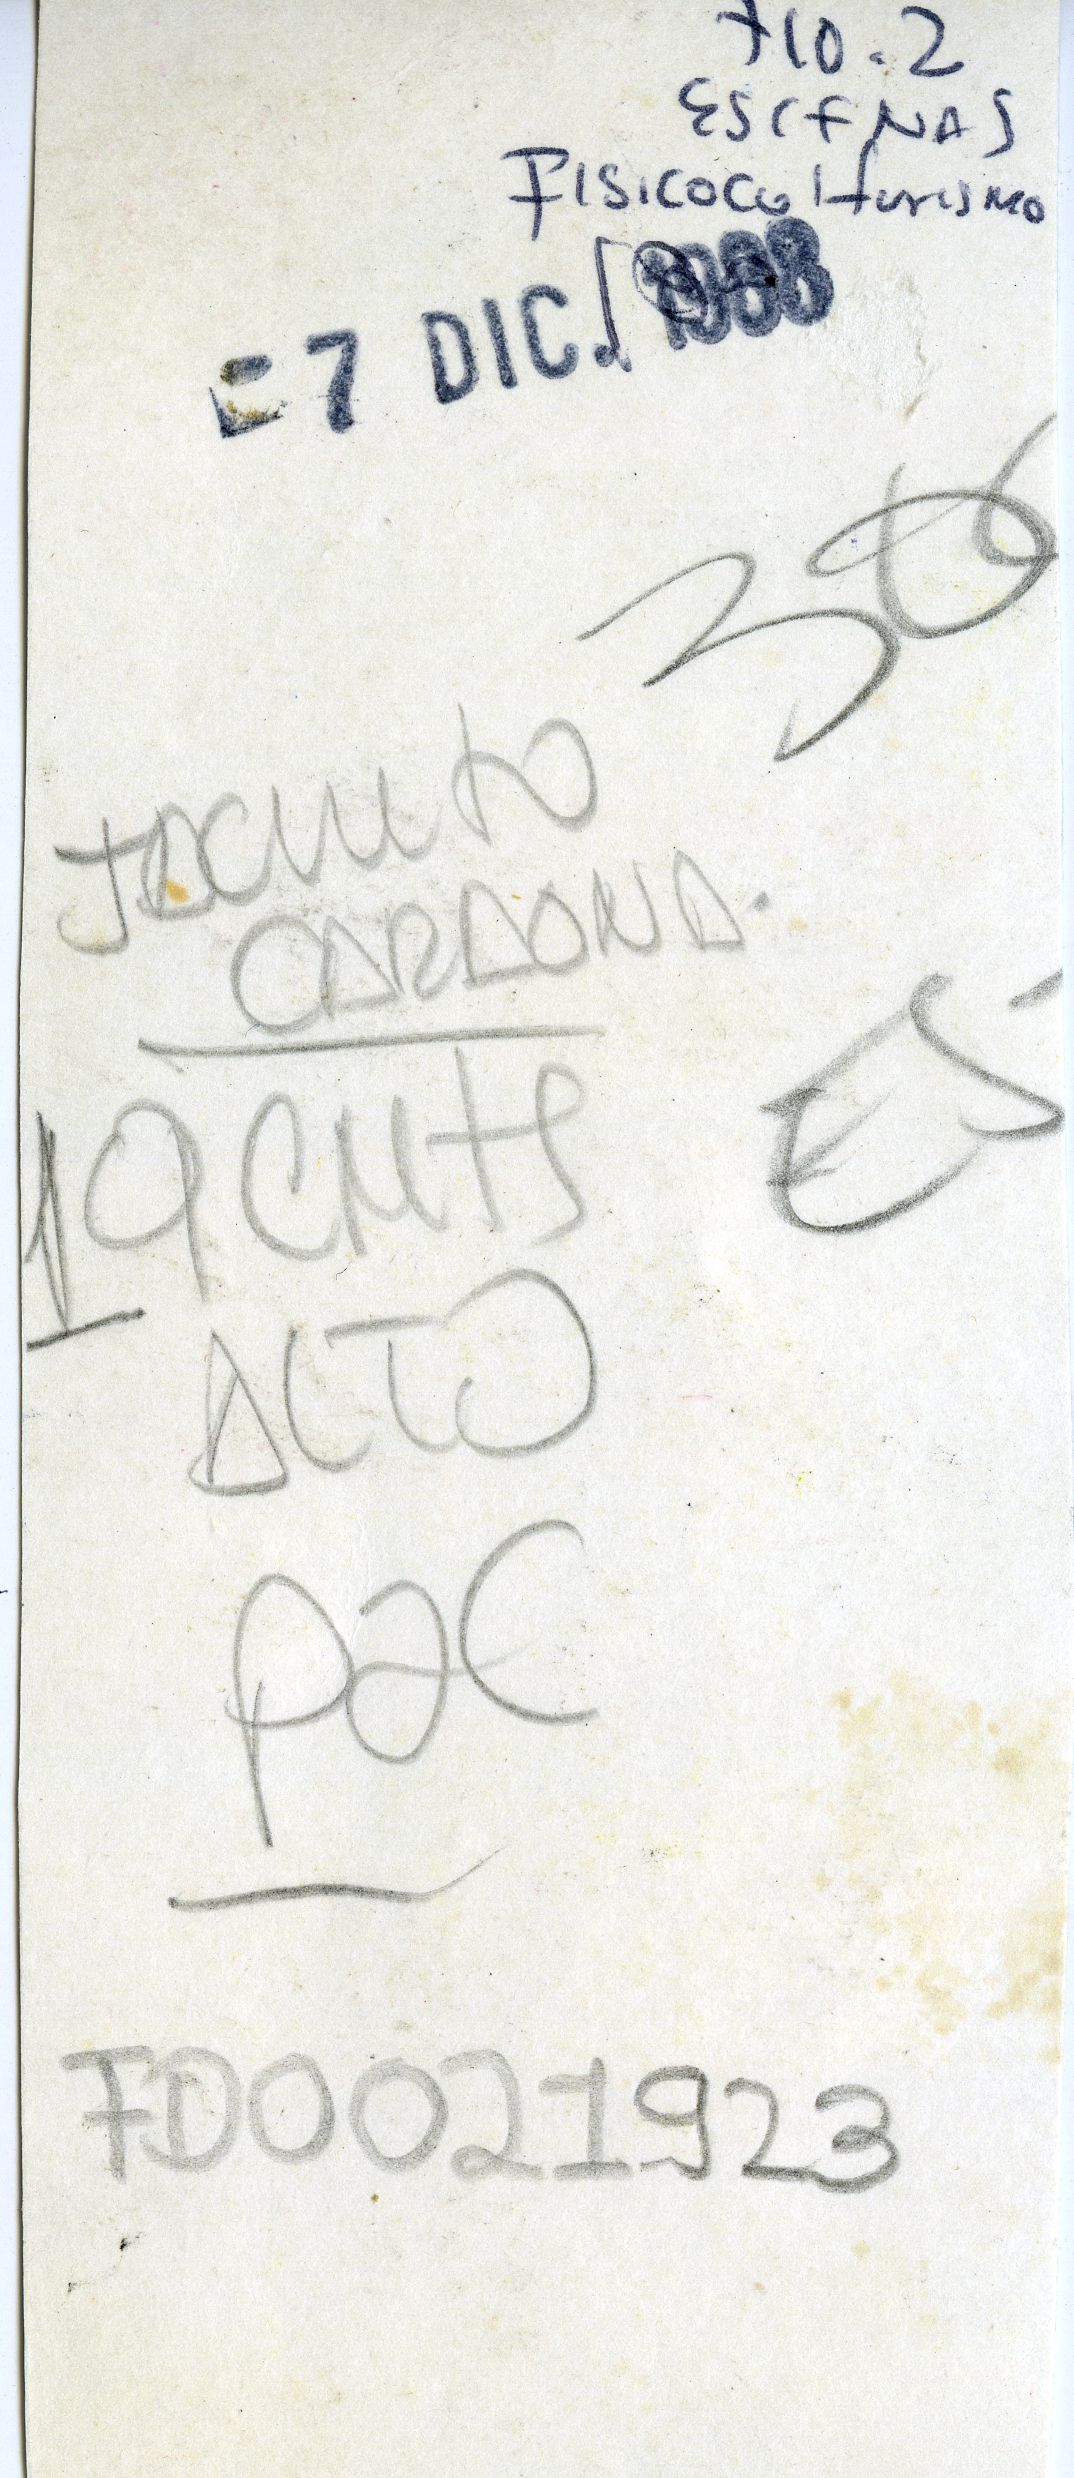 710.2
ESCENAS
FISICOCulturismo
-7 DIC. 1988
36
JACINTO
CARDONA.
19 CMTS
ES
ALTO
P2C
FD0021923